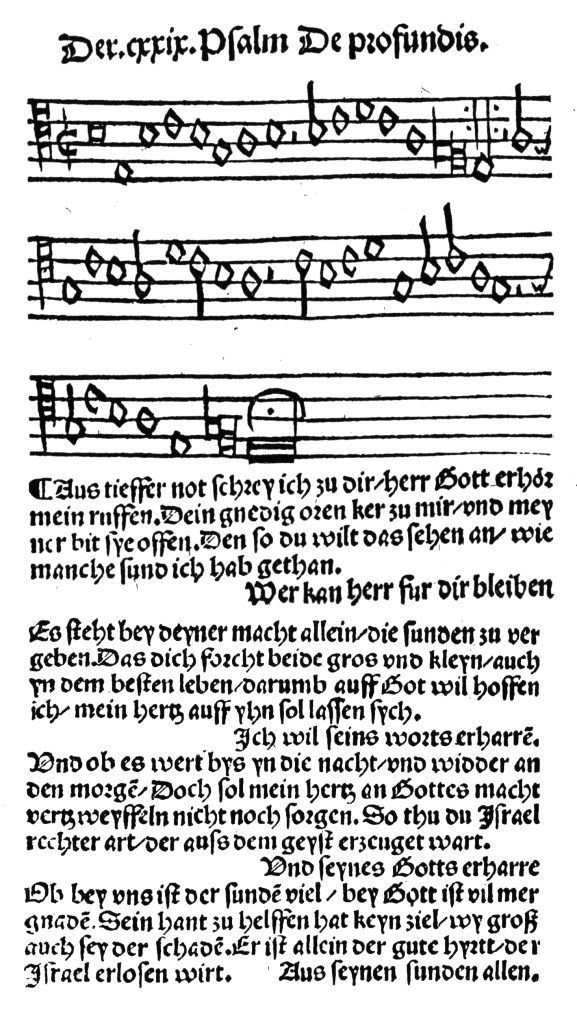 Der.cxxix.Psalm De profundis.
¶Aus tieffer not schrey ich zu dir/herr Gott erhör
mein ruffen.Dein gnedig oren ker zu mir/vnd mey
ner bit sye offen.Den so du wilt das sehen an/ wie
manche sund ich hab gethan.
Wer kan herr fur dir bleiben
Es steht bey deyner macht allein/die sunden zu ver
geben.Das dich forcht beide gros vnd kleyn/auch
yn dem besten leben/darumb auff Got wil hoffen
ich/ mein hertz auff yhn sol lassen sych.
Ich wil seins worts erharrẽ.
Vnd ob es wert bys yn die nacht/vnd widder an
den morgẽ/Doch sol mein hertz an Gottes macht
vertzweyffeln nicht noch sorgen. So thu du Israel
rechter art/der auss dem geyst erzeuget wart.
Vnd seynes Gotts erharre
Ob bey vns ist der sundẽ viel / bey Gott ist vil mer
gnadẽ.Sein hant zu helffen hat keyn ziel/wy groß
auch sey der schadẽ.Er ist allein der gute hyrtt/der
Israel erlosen wirt. Aus seynen sunden allen.